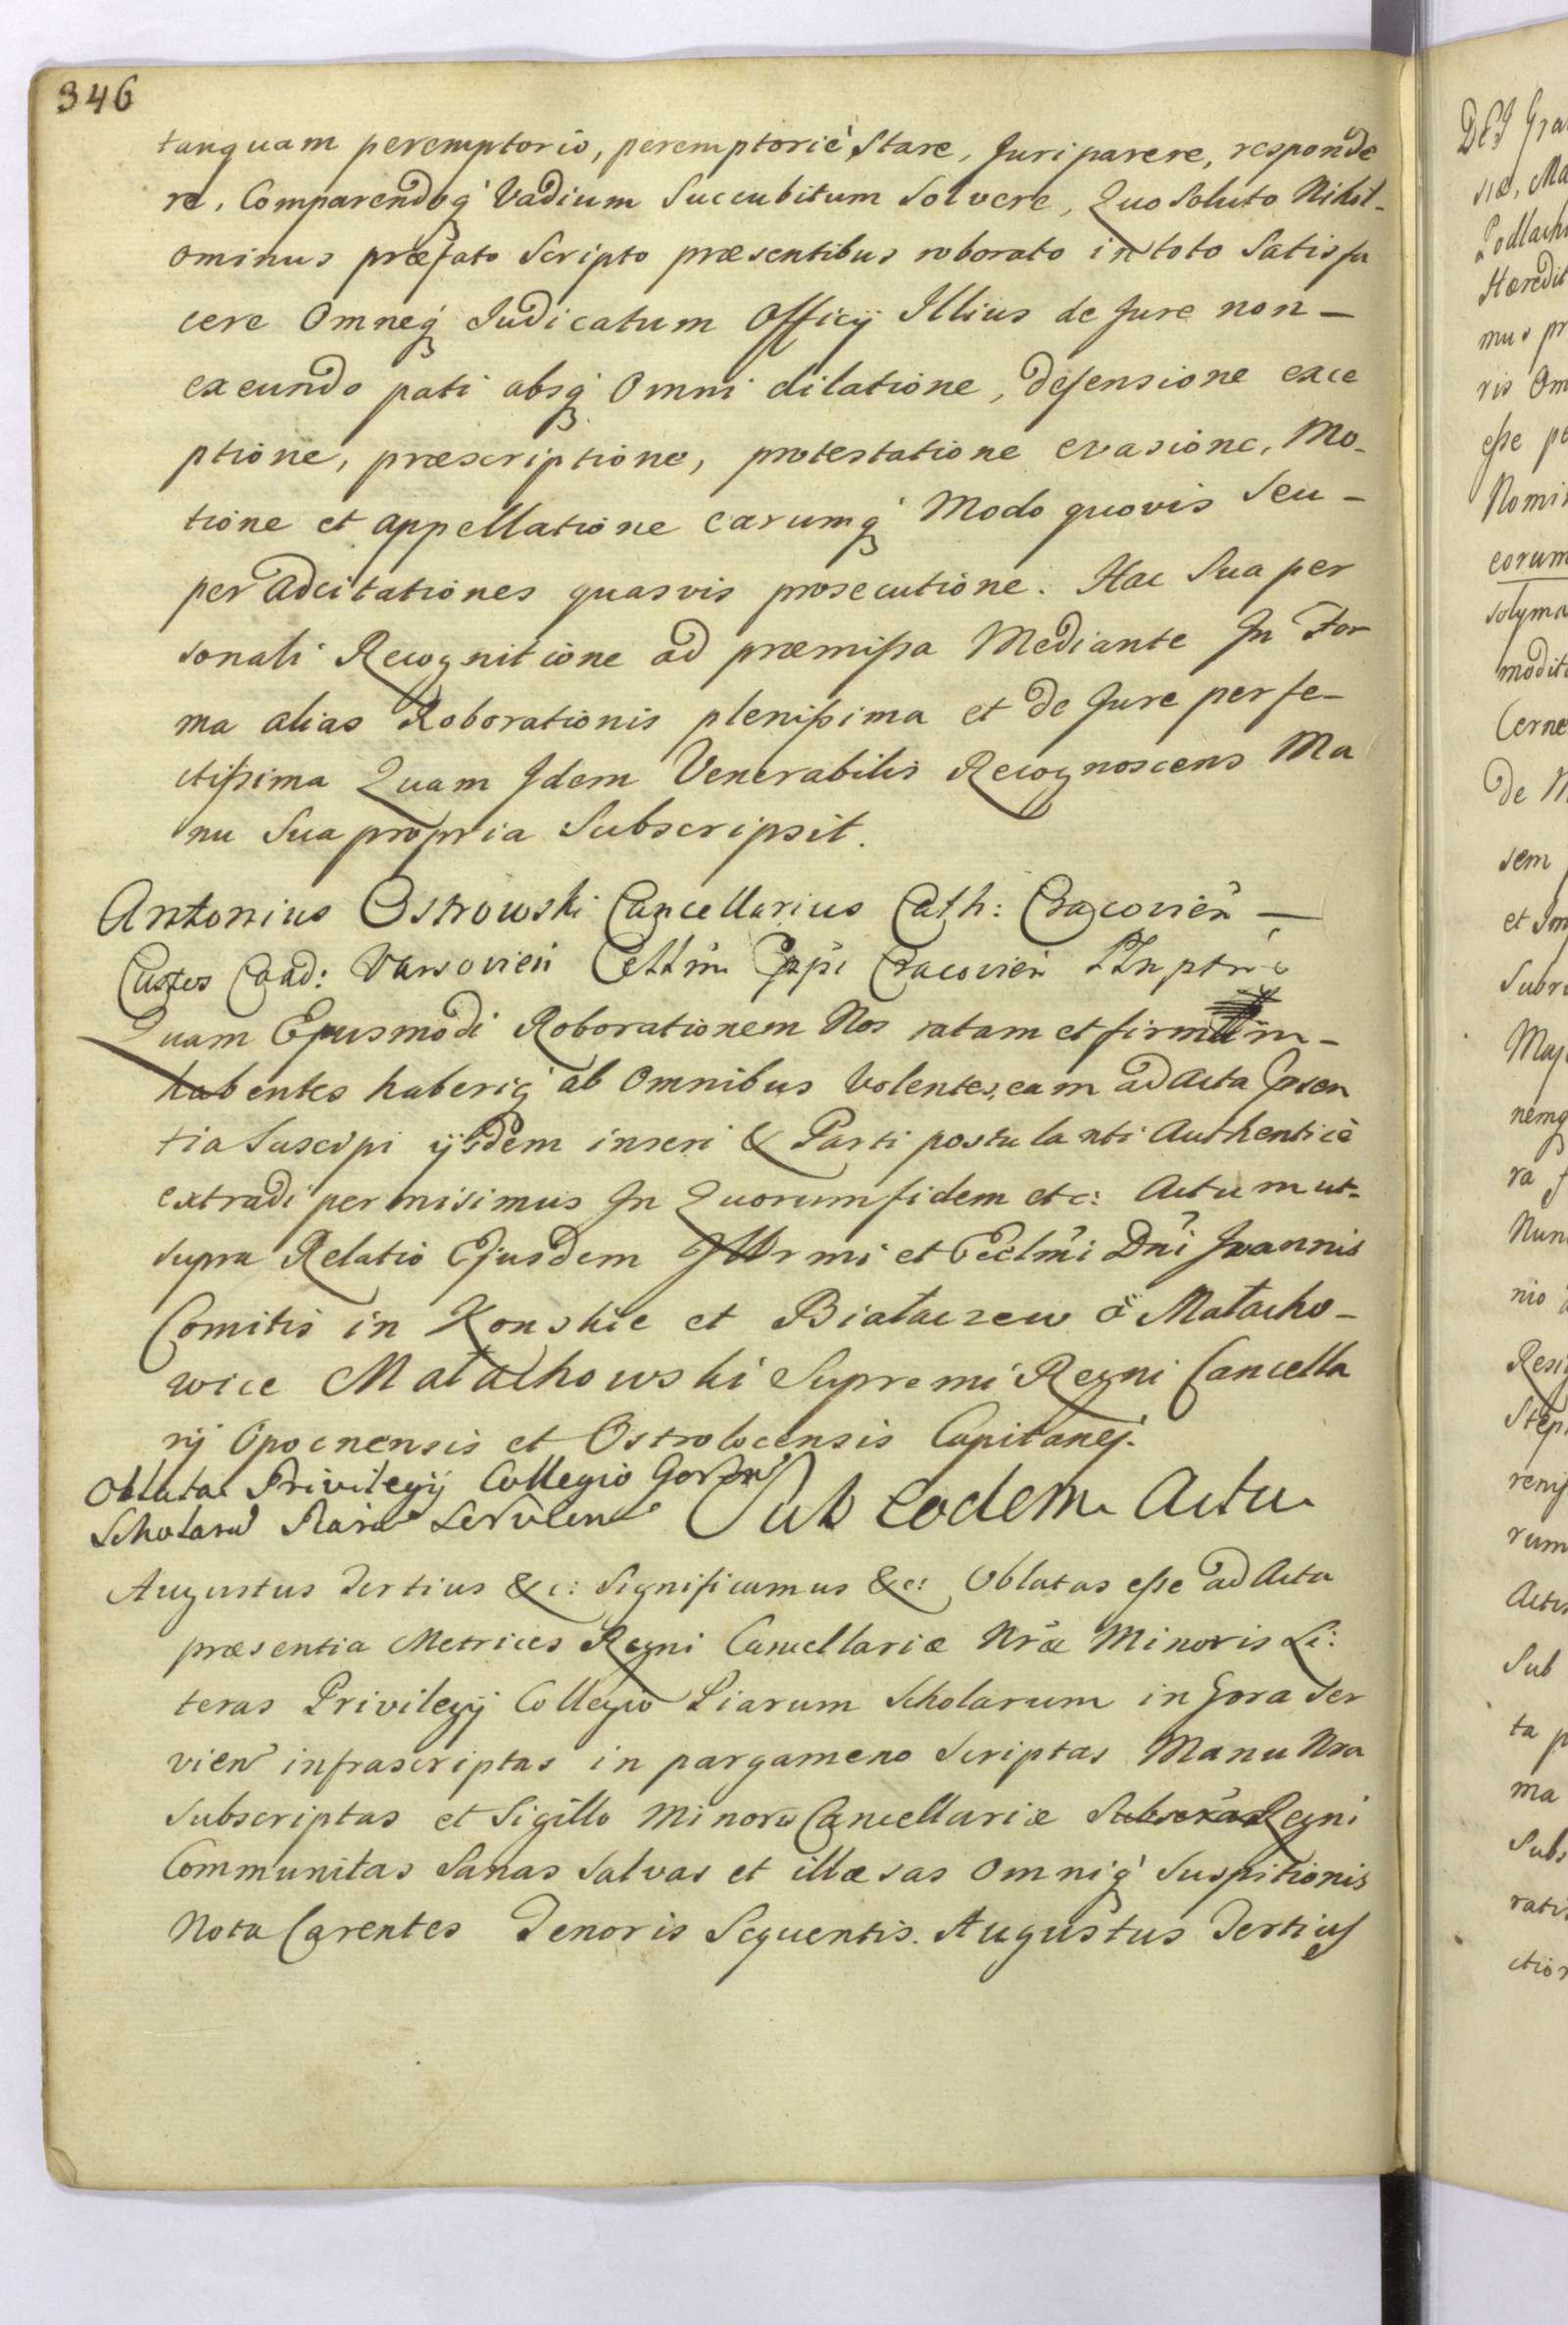 346
tanquam peremptorio, peremptoriè Stare, Juri parere, responde
re, Comparendoq́ Vadium Succubitum Solvere, Quo Soluto Nihil-
ominus præfato Scripto præsentibus roborato in toto Satisfa
cere Omneq́ Judicatum Officij Illius de Jure non –
exeundo pati absq́ Omni dilatione, defensione exce
ptione, præscriptione, protestatione evasione, Mo-
tione et appellatione earumq́ Modo quovis Seu –
per adcitationes quasvis prosecutione. Hac Sua per
sonali Recognitione ad præmissa Mediante In For
ma alias Roborationis plenissima et de Jure perfe-
ctissima Quam Idem Venerabilis Recognoscens Ma
nu Sua propria Subscripsit.
Antonius Ostrowski Cancellarius Cath: Cracovień –
Custos Varsovień Cracovień
Quam Ejusmodi Roborationem Nos ratam et firmam –
habentes haberiq́ ab Omnibus Volentes, eam ad Acta Præsen
tia Suscipi ijsdem inseri & Parti postulanti Authenticè
extradi permisimus In Quorum fidem etc: Actum ut-
supra Relatio Ejusdem Illrmi et Eccl̃mi Dñi Joannis
Comitis in Konskie et Białaczew ä Małacho-
wice Małachowski Supremi Regni Cancella
rij Opocnensis et Ostrolocensis Capitanej.
Oblata Privilegij Collegio
Sub eodem Actu
Augustus Tertius &c: Significamus &c: Oblatas esse ad Acta
præsentia Metrices Regni Cancellariæ Nr̃æ Minoris Li:
teras Privilegij Collegio Piarum Scholarum in Gora Ser
vien infrascriptas in pargameno Scriptas Manu Nra
Subscriptas et Sigillo Minoris Cancellariæ Regni
Communitas Sanas Salvas et illæsas Omniq́ Suspitionis
Nota Carentes Tenoris Sequentis. Augustus Tertius
DEI Gra
siæ, Ma
Podlach
Hæredit
mus pr
ris Om
esse pe
Nomi
eorum
solyma
modit
Cerne
de N
sem
et Im
Subr
Maj
nemq
ra f
Nun
nio
Resi
Step
rum
Actis
Sub
ta p
ma
Subs
rati
ction